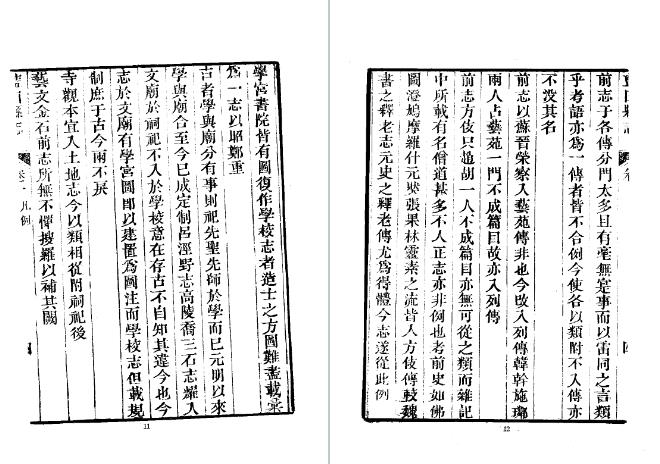 學宮書院皆有圖復作學校志者造士之方圖難盡載彙
為一志以昭鄭重
古者學與廟分有事則祀先聖先師於學而已元明以來
學與廟合至今已成定制呂涇野志高陵喬三石志耀入
文廟於祠祀不入於學校意在存古不自知其違今也今
志於文廟有學宮圖即以建置為圖注而學校志但載規
制庶于古今兩不戾
寺觀本宜入土地志今以類相從附祠祀後
藝文金石前志所無不憚搜羅以補其闕
凡例
11
前志于各傳分門太多且有毫無寔事而以雷同之言類
乎考語亦為一傳者皆不合例今使各以類附不入傳亦
不没其名
前志以蘇晉榮察入藝苑傳非也今改入列傳韓幹施璘
兩人占藝苑一門不成篇目故亦入列傳
前志方伎只趙胡一人不成篇目亦無可從之類而雜記
中所載有名僧道甚多不入正志亦非例也考前史如佛
圖澄鳩摩羅什元奘張果林靈素之流皆入方伎傳較魏
書之釋老志元史之釋老傳尤為得體今志遂從此例
12